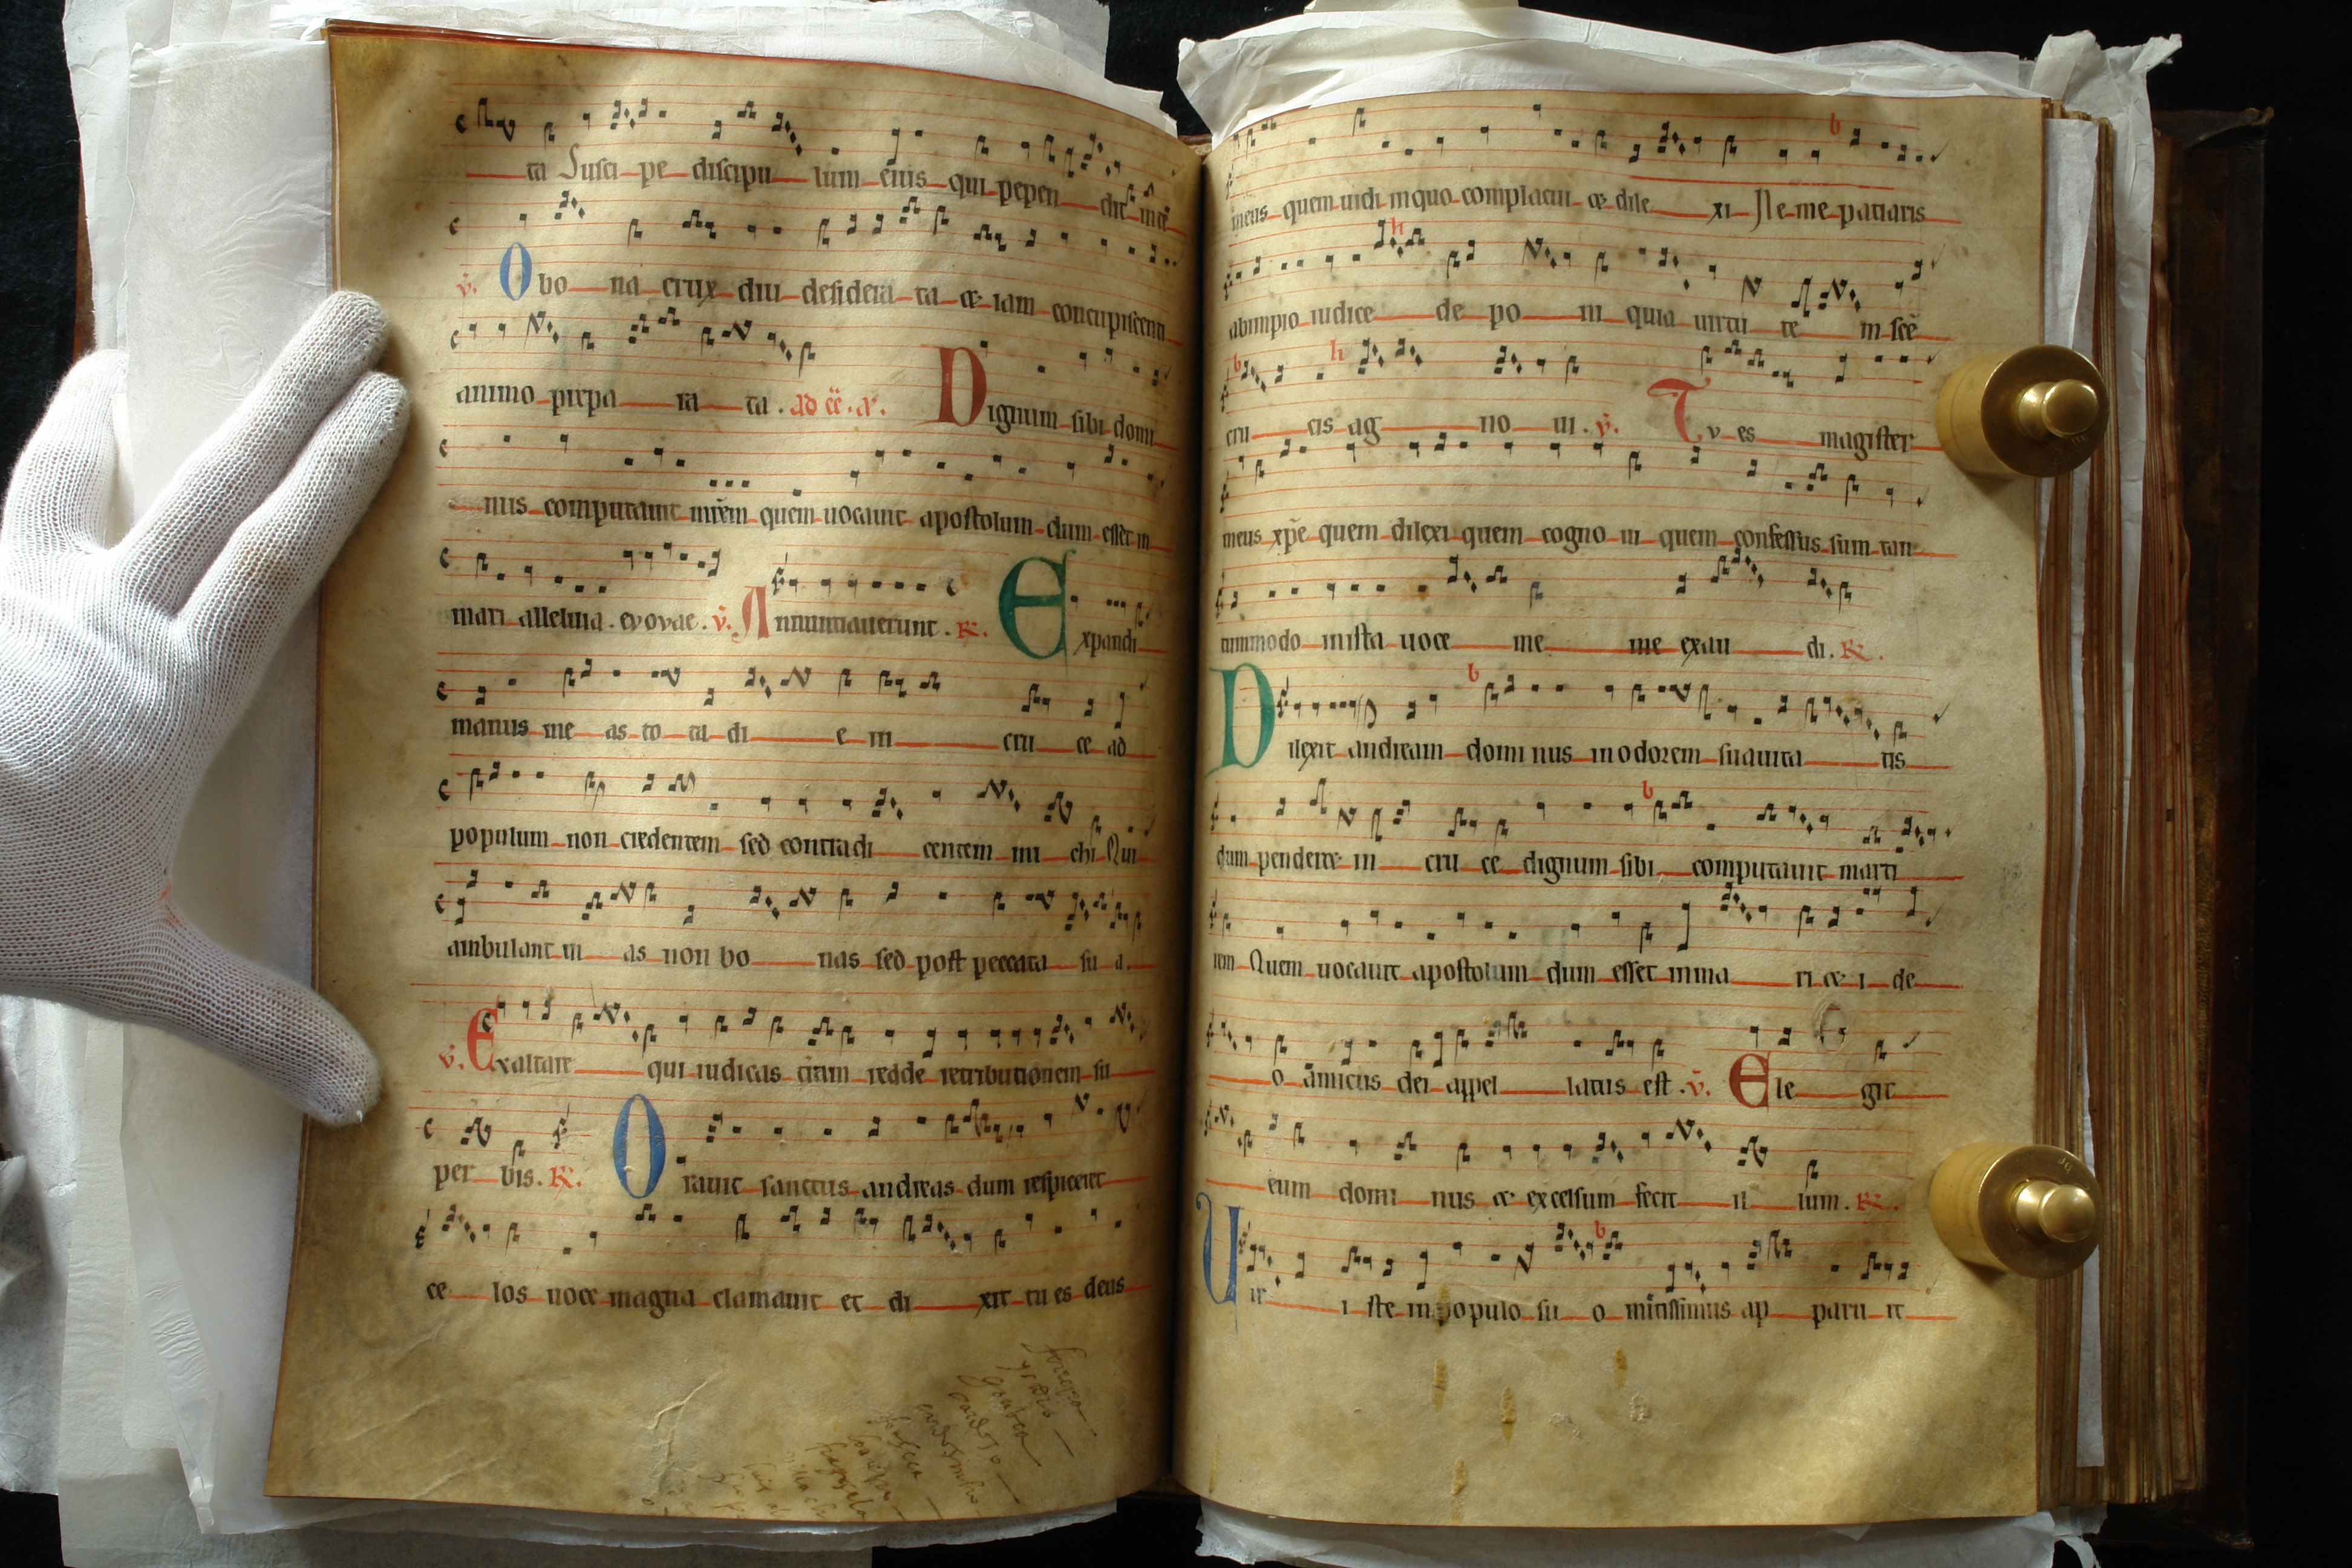 ta Susci pe discipu lum eius qui pepen dit in te
v̄. O bo na crux diu desidera ta et iam concupiscenti
animo prepa ra ta. ad cc̄. a. Dignum sibi domi
nus computauit mr̄em quem uocauit apostolum dum esset in
mari alleluia. evovae. v̄. Annuntiauerunt. R. Expandi
manus me as to ta di e in cru ce ad
populum non credentem sed contradi centem mi chi Qui
ambulant ui as non bo nas sed post peccata su a.
v̄. Exaltare qui iudicas t̄ram redde retributionem su
per bis. R. Orauit sanctus andreas dum respiceret
ce los uoce magna clamauit et di xit tu es deus
meus quem uidi in quo complacui et dile xi Ne me patiaris
abimpio iudice de po ni quia uirtu te m sc̄e
cru cis ag no ui. v̄. Tv es magister
meus xp̄e quem dilexi quem cogno ui quem confessus sum tan
tummodo in ista uoce me me exau di. R.
Dilexit andream domi nus in odorem suauita tis
dum penderet in cru ce dignum sibi computauit marti
rem Quem uocauit apostolum dum esset in ma ri et i de
o amicus dei appel latus est. v̄. Ele git
eum domi nus et excelsum fecit il lum. R.
Vir i ste in populo su o mitissimus ap paru it